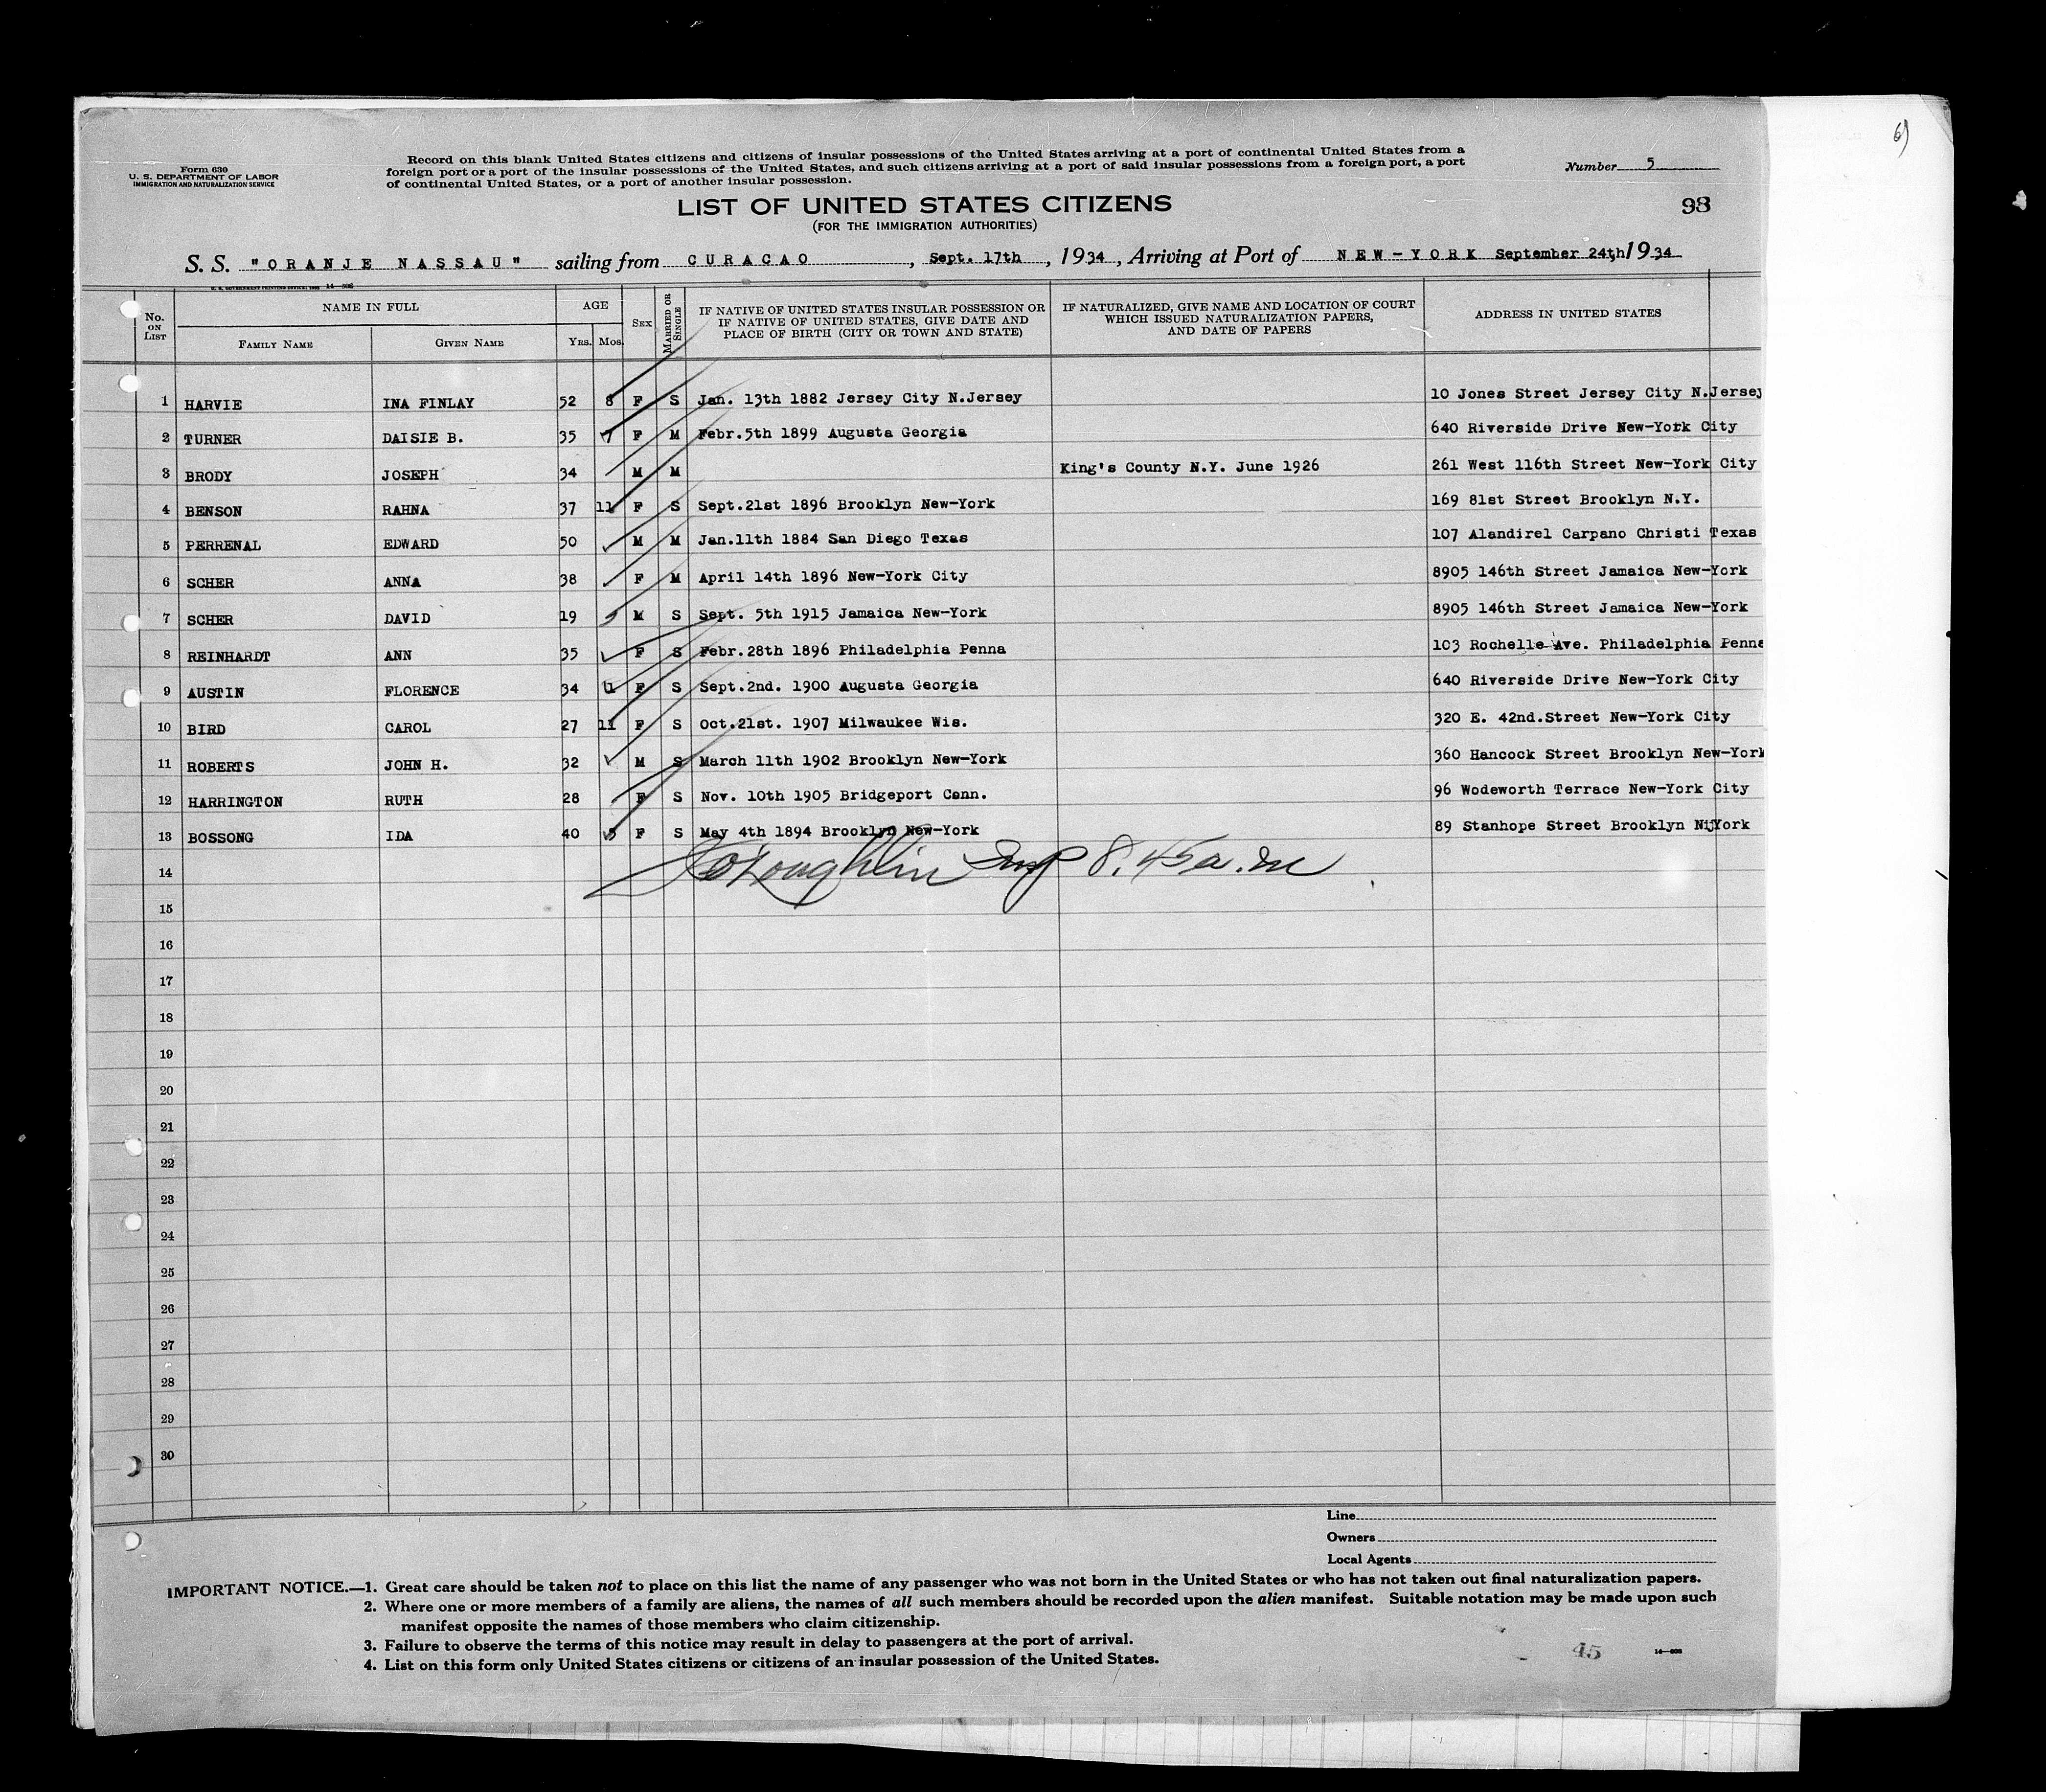 6)
Form 630
U. S. DEPARTMENT OF LABOR
IMMIGRATION AND NATURALIZATION SERVICE
Record on this blank United States citizens and citizens of insular possessions of the United States arriving at a port of continental United States from a
foreign port or a port of the insular possessions of the United States, and such citizens arriving at a port of said insular possessions from a foreign port, a port
of continental United States, or a port of another insular possession.
Number 5
LIST OF UNITED STATES CITIZENS
(FOR THE IMMIGRATION AUTHORITIES)
93
S. S. "ORANJE NASSAU" sailing from CURACAO, Sept. 17th, 1934, Arriving at Port of NEW-YORK September 24th, 1934
No. ON LIST NAME IN FULL FAMILY NAME GIVEN NAME AGE YRS. MOS. SEX MARRIED OR SINGLE IF NATIVE OF UNITED STATES INSULAR POSSESSION OR IF NATIVE OF UNITED STATES, GIVE DATE AND PLACE OF BIRTH (CITY OR TOWN AND STATE) IF NATURALIZED, GIVE NAME AND LOCATION OF COURT WHICH ISSUED NATURALIZATION PAPERS, AND DATE OF PAPERS ADDRESS IN UNITED STATES
1 HARVIE INA FINLAY 52 8 F S Jan. 13th 1882 Jersey City N.Jersey 10 Jones Street Jersey City N.Jersey
2 TURNER DAISIE B. 35 7 F M Febr.5th 1899 Augusta Georgia 640 Riverside Drive New-York City
3 BRODY JOSEPH 34 M M King's County N.Y. June 1926 261 West 116th Street New-York City
4 BENSON RAHNA 37 11 F S Sept.21st 1896 Brooklyn New-York 169 81st Street Brooklyn N.Y.
5 PERRENAL EDWARD 50 M M Jan.11th 1884 San Diego Texas 107 Alandirel Carpano Christi Texas
6 SCHER ANNA 38 F M April 14th 1896 New-York City 8905 146th Street Jamaica New-York
7 SCHER DAVID 19 M S Sept. 5th 1915 Jamaica New-York 8905 146th Street Jamaica New-York
8 REINHARDT ANN 35 F S Febr.28th 1896 Philadelphia Penna 103 Rochelle Ave. Philadelphia Penna
9 AUSTIN FLORENCE 34 F S Sept.2nd. 1900 Augusta Georgia 640 Riverside Drive New-York City
10 BIRD CAROL 27 11 F S Oct.21st. 1907 Milwaukee Wis. 320 E. 42nd.Street New-York City
11 ROBERTS JOHN H. 32 M S March 11th 1902 Brooklyn New-York 360 Hancock Street Brooklyn New-York
12 HARRINGTON RUTH 28 F S Nov. 10th 1905 Bridgeport Conn. 96 Wodeworth Terrace New-York City
13 BOSSONG IDA 40 F S May 4th 1894 Brooklyn New-York 89 Stanhope Street Brooklyn N York
14 O'Loughlin Insp 8.45 a.m
15
16
17
18
19
20
21
22
23
24
25
26
27
28
29
30
Line
Owners
Local Agents
IMPORTANT NOTICE.—1. Great care should be taken not to place on this list the name of any passenger who was not born in the United States or who has not taken out final naturalization papers.
2. Where one or more members of a family are aliens, the names of all such members should be recorded upon the alien manifest. Suitable notation may be made upon such
manifest opposite the names of those members who claim citizenship.
3. Failure to observe the terms of this notice may result in delay to passengers at the port of arrival.
4. List on this form only United States citizens or citizens of an insular possession of the United States.
45